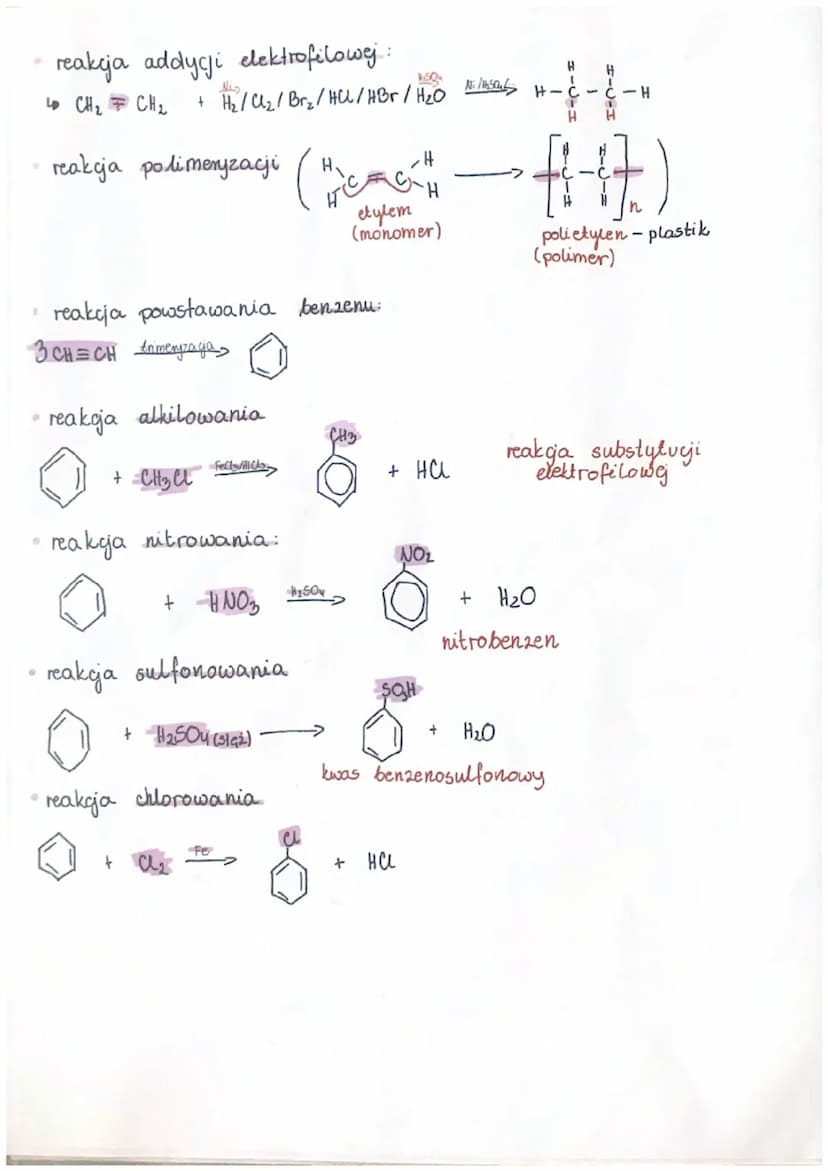 • reakcja addycji elektrofilowej:
↳ CH₂ = CH₂ + H₂/Cl₂/Br₂/HCl/HBr/H₂O
Ni
H₂SO₄
Ni/H₂SO₄
H H
H-C-C-H
H H
• reakcja polimeryzacji
H H
C=C
H H
etylem
(monomer)
H H
C-C
H H
n
polietylen - plastik
(polimer)
• reakcja powstawania benzenu:
3CH≡CH trimeryzacja
• reakcja alkilowania
+ CH₃Cl FeCl₃/AlCl₃
CH₃
+ HCl
reakcja substytucji
elektrofilowej
• reakcja nitrowania:
+ HNO₃ H₂SO₄
NO₂
+ H₂O
nitrobenzen
• reakcja sulfonowania
+ H₂SO₄ (stęż)
SO₃H
+ H₂O
kwas benzenosulfonowy
• reakcja chlorowania
+ Cl₂ Fe
Cl
+ HCl